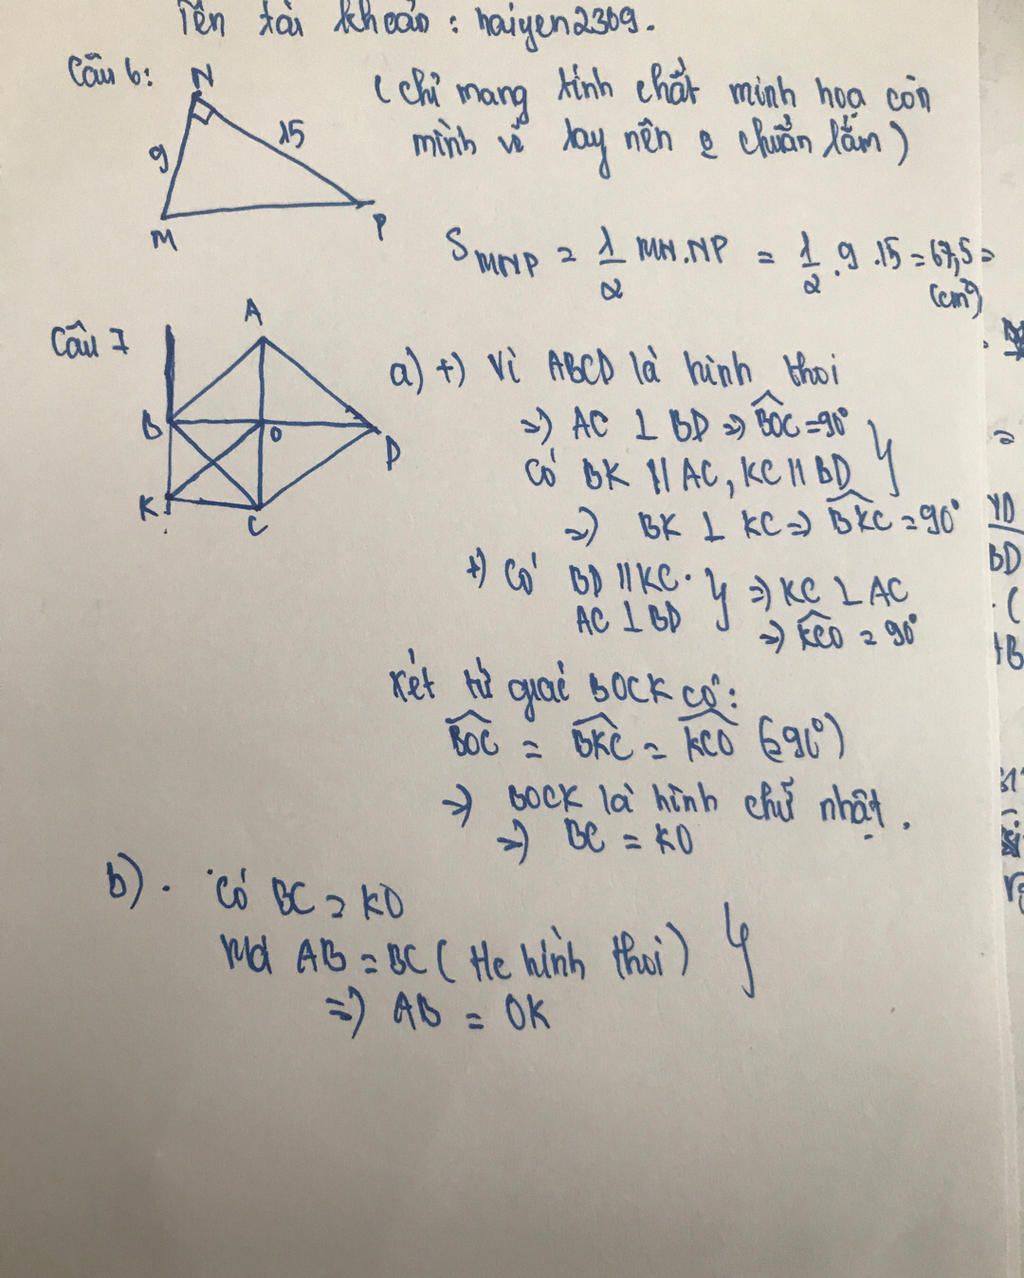 Tên tài khoản : haiyen2309.
Câu 6:
N
(chỉ mang tính chất minh hoạ còn
mình vẽ tay nên e chuẩn lắm)
9
15
M
P
S MNP = 1/2 MN.NP = 1/2 . 9 . 15 = 67,5 =
(cm²)
Câu 7
A
B
O
D
K
C
a) +) Vì ABCD là hình thoi
=> AC ⊥ BD => BOC = 90°
Có BK // AC, KC // BD
=> BK ⊥ KC => BKC = 90°
+) Có BD // KC.
AC ⊥ BD
=> KC ⊥ AC
=> KCO = 90°
Xét tứ giác BOCK có:
BOC = BKC = KCO (=90°)
=> BOCK là hình chữ nhật.
=> BC = KO
b). Có BC = KO
Mà AB = BC ( t/c hình thoi )
=> AB = OK